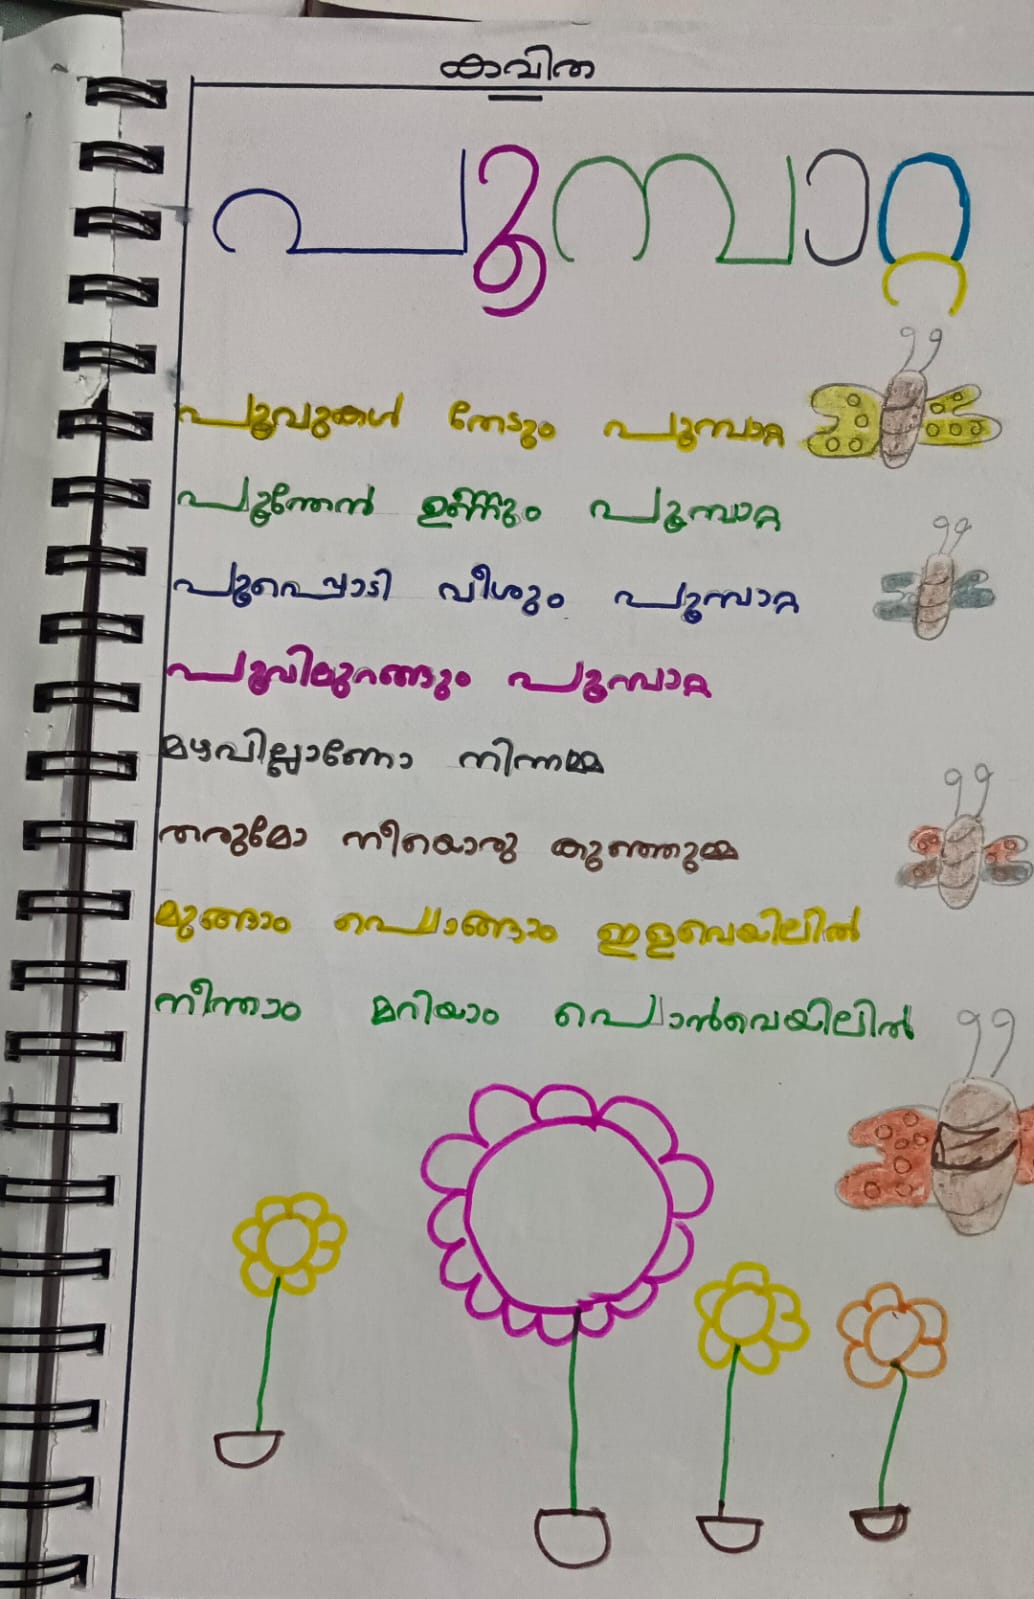 കവിത
പൂമ്പാറ്റ
പൂവുകൾ തേടും പൂമ്പാറ്റ
പൂന്തേൻ ഉണ്ണും പൂമ്പാറ്റ
പൂപ്പൊടി വീശും പൂമ്പാറ്റ
പൂവിലുറങ്ങും പൂമ്പാറ്റ
മഴവില്ലാണോ നിന്നമ്മ
തരുമോ നീയൊരു കുഞ്ഞുമ്മ
മുങ്ങാം പൊങ്ങാം ഇളവെയിലിൽ
നീന്താം മറിയാം പൊൻവെയിലിൽ